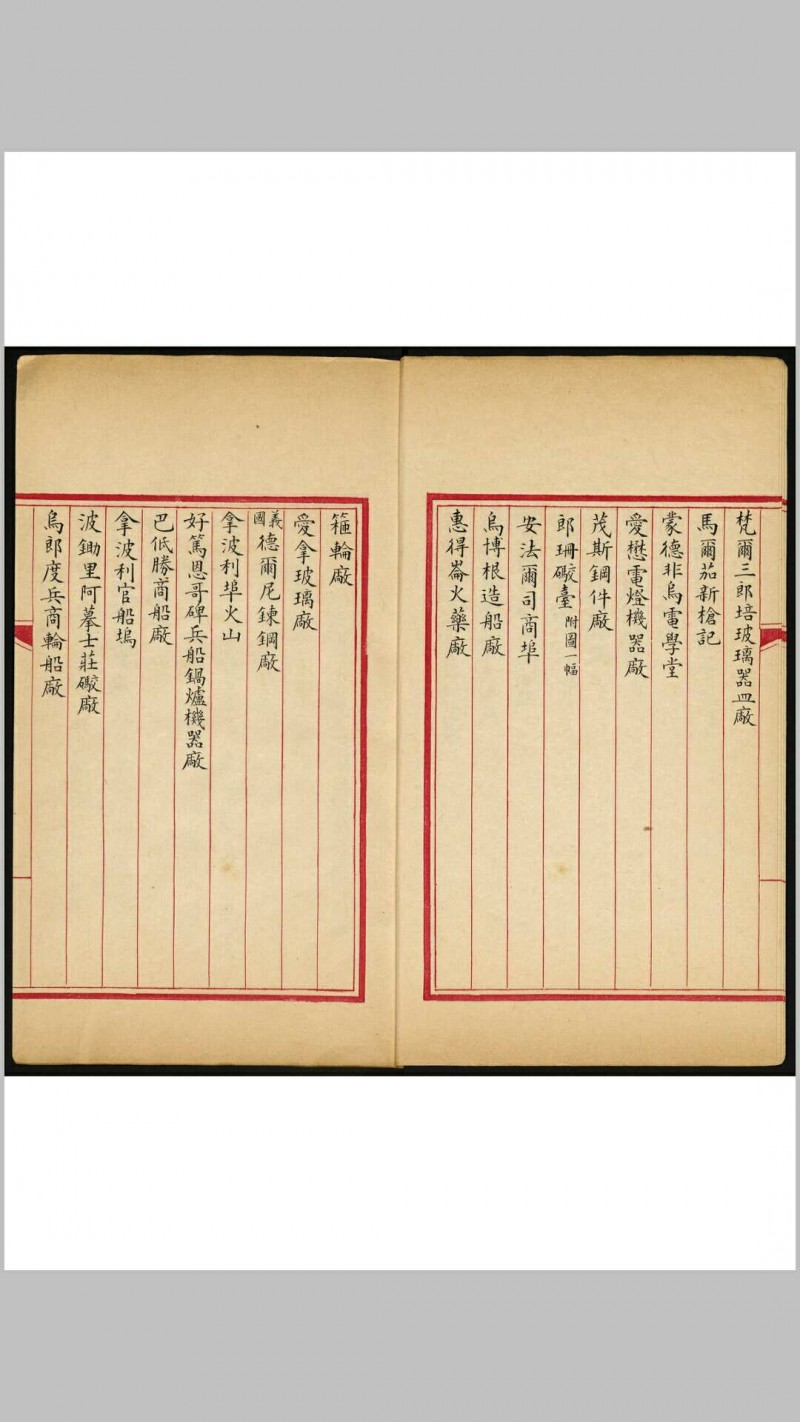 梵爾三郎培玻璃器皿廠
馬爾茄新槍記
蒙德非烏電學堂
愛懋電燈機器廠
茂斯鋼件廠
郎珊礮臺附圖一幅
安法爾司商埠
烏博根造船廠
惠得崙火藥廠
箍輪廠
愛拿玻璃廠
義國德爾尼鍊鋼廠
拿波利埠火山
好篤恩哥碑兵船鍋爐機器廠
巴低勝商船廠
拿波利官船塢
波鋤里阿摹士莊礮廠
烏郎度兵商輪船廠